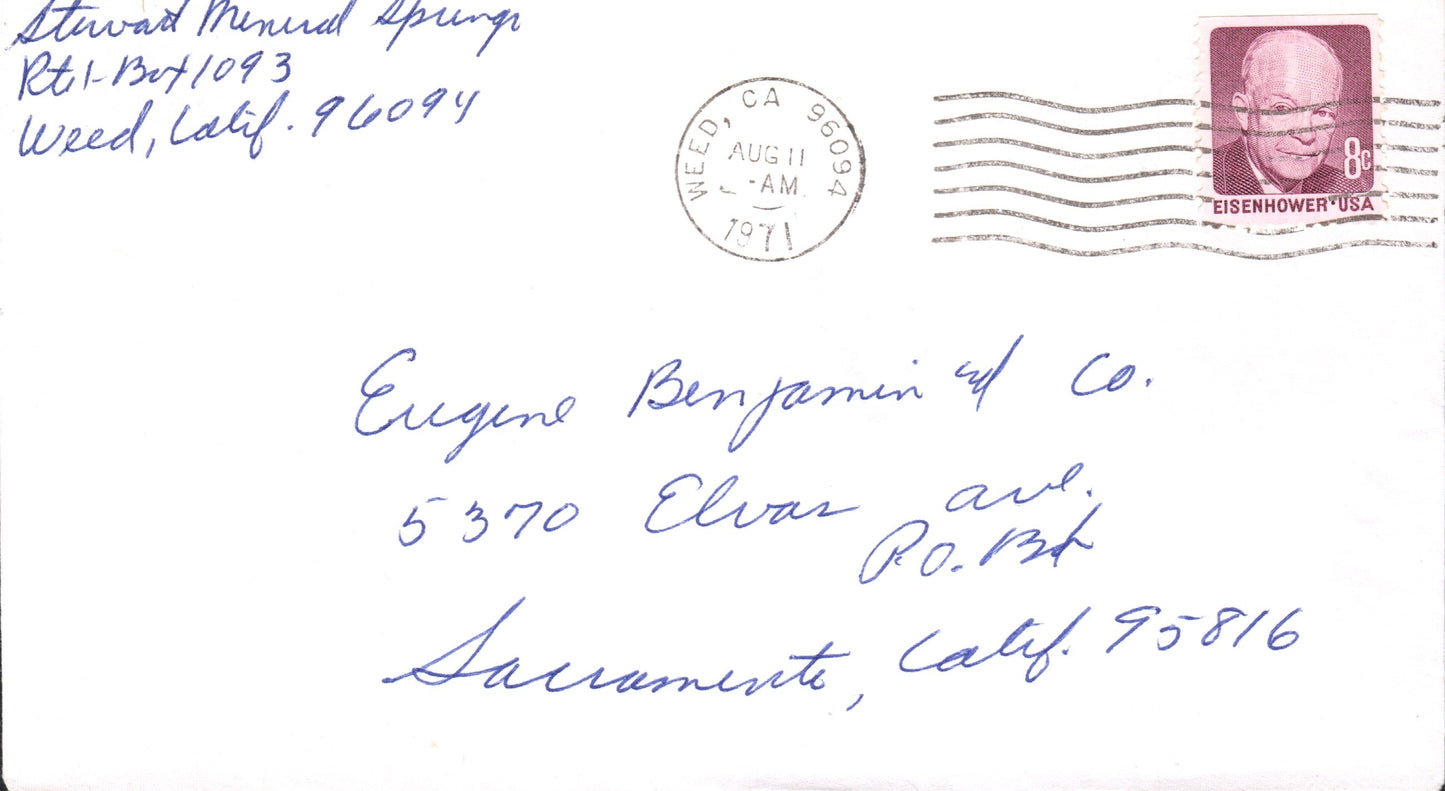 Stewart Mineral Springs
Rte 1-Box 1093
Weed, Calif. 96094
WEED, CA 96094
AUG 11
-AM
1971
8c
EISENHOWER·USA
Eugene Benjamin and Co.
5370 Elvas ave.
P.O. Bx
Sacramento, Calif. 95816